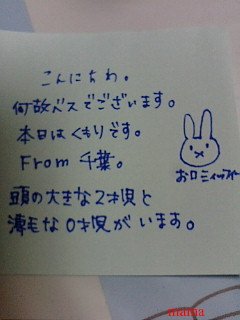 こんにちわ。
何故バスでございます。
本日はくもりです。
From 千葉。
お口ミィッフィー
頭の大きな2才児と
薄毛な0才児がいます。
mama